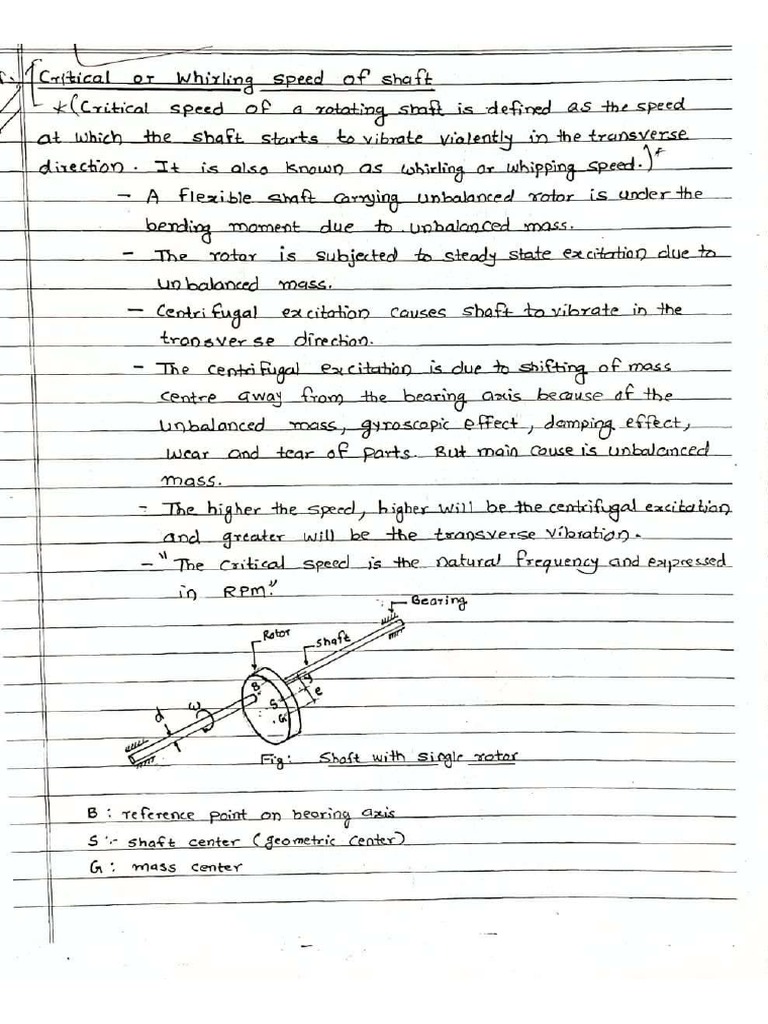 Critical or Whirling speed of shaft
*(Critical speed of a rotating shaft is defined as the speed
at which the shaft starts to vibrate violently in the transverse
direction. It is also known as whirling or whipping speed.)*
- A flexible shaft carrying unbalanced rotor is under the
bending moment due to unbalanced mass.
- The rotor is subjected to steady state excitation due to
unbalanced mass.
- Centrifugal excitation causes shaft to vibrate in the
transverse direction.
- The centrifugal excitation is due to shifting of mass
centre away from the bearing axis because of the
unbalanced mass, gyroscopic effect, damping effect,
wear and tear of parts. But main cause is unbalanced
mass.
- The higher the speed, higher will be the centrifugal excitation
and greater will be the transverse vibration.
- "The critical speed is the natural frequency and expressed
in RPM."
Bearing
Rotor
shaft
B
y
S
e
G
ω
d
Fig: Shaft with single rotor
B : reference point on bearing axis
S :- shaft center (geometric center)
G : mass center